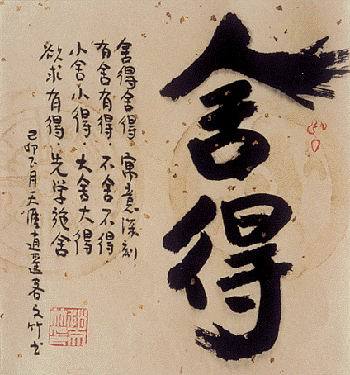 舍得
舍得舍得·寓意深刻
有舍有得·不舍不得·
小舍小得·大舍大得
欲求有得·先学施舍
己卯月天涯逍遥客文竹书